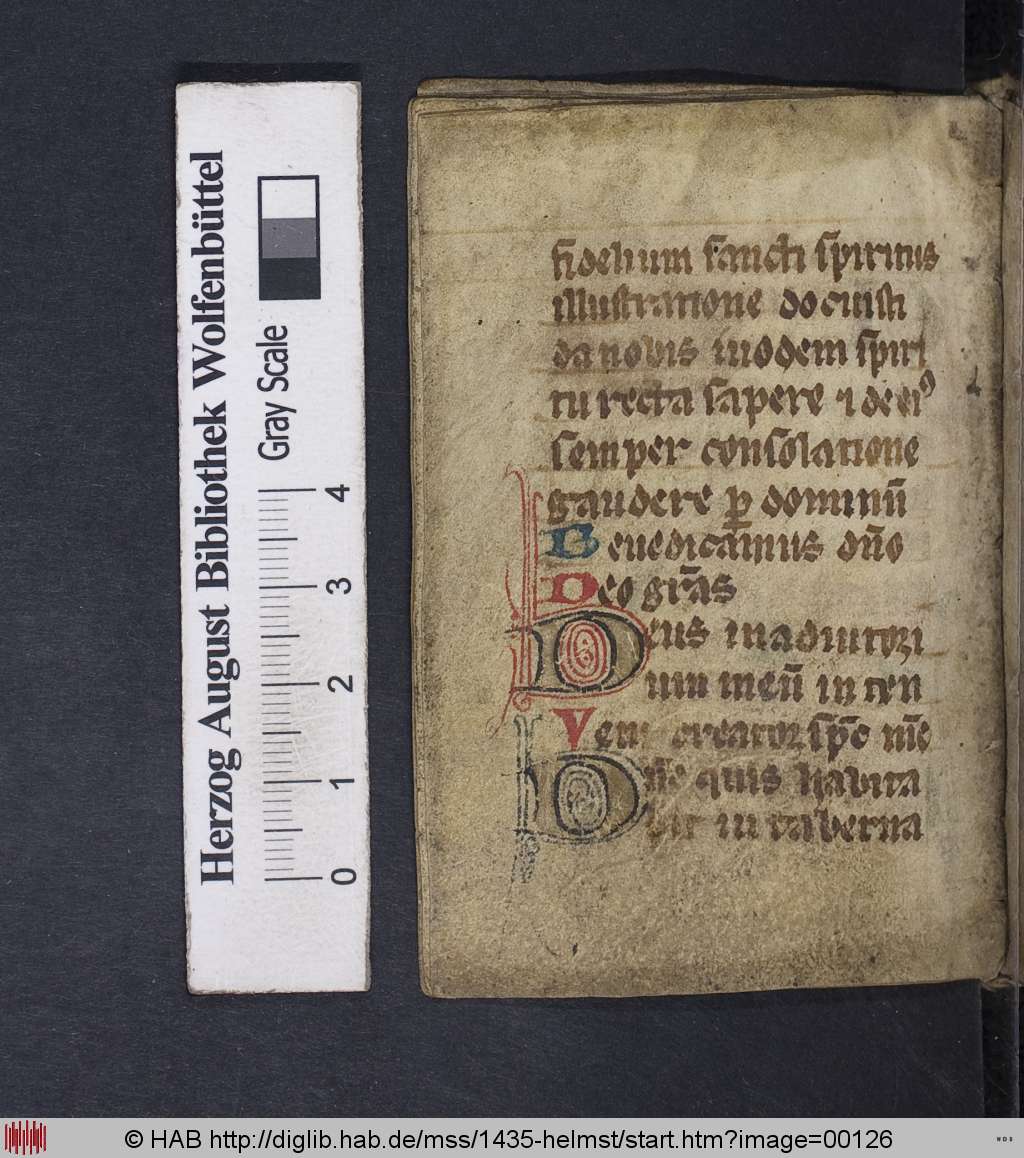 Herzog August Bibliothek Wolfenbüttel
Gray Scale
0 1 2 3 4
fidelium sancti spiritus
illustratione docuisti
da nobis in odem spiri
tu recta sapere ⁊ de eiꝰ
semper consolatione
gaudere ꝑ dominū
Benedicamus dn̄o
Deo gr̄as
Deus in adiutori
um meū in ten
Veni creator sp̄c m̄e
Dn̄e quis habita
bit in taberna
© HAB http://diglib.hab.de/mss/1435-helmst/start.htm?image=00126